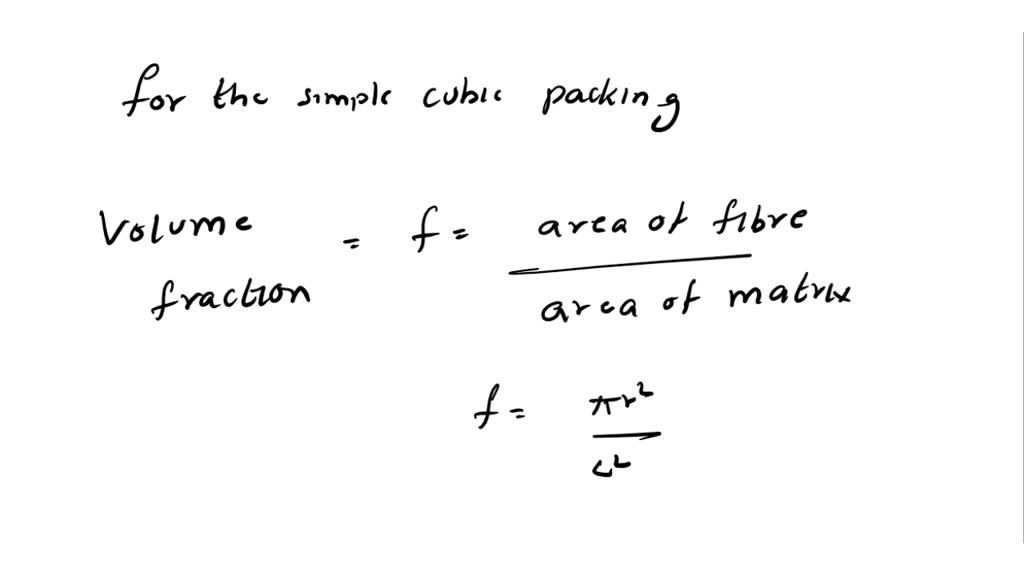 for the simple cubic packing
Volume fraction = f = area of fibre / area of matrix
f = πr² / c²